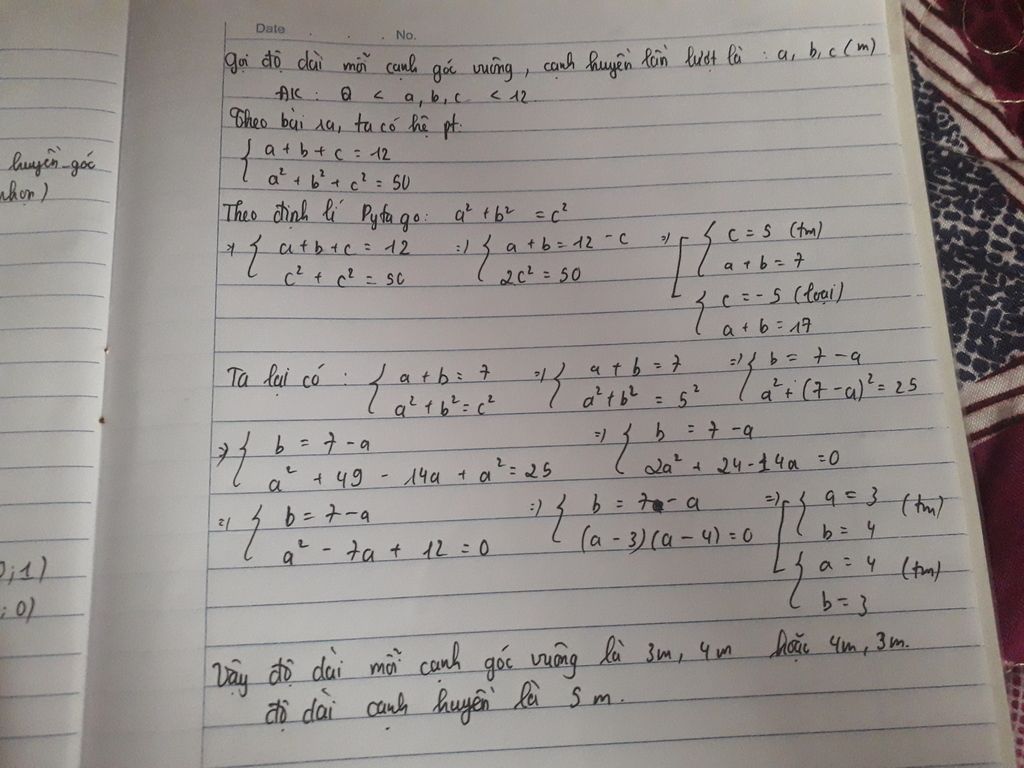 huyền-góc
nhọn)
0;1)
; 0)
Date . . . No.
Gọi độ dài mỗi cạnh góc vuông, cạnh huyền lần lượt là : a, b, c (m)
ĐK : 0 < a, b, c < 12
Theo bài ra, ta có hệ pt:
{ a + b + c = 12
a² + b² + c² = 50
Theo định lí Pytago: a² + b² = c²
=) { a + b + c = 12 =) { a + b = 12 - c =) [ { c = 5 (tm)
c² + c² = 50 2c² = 50 a + b = 7
{ c = -5 (loại)
a + b = 17
Ta lại có : { a + b = 7 =) { a + b = 7 =) { b = 7 - a
a² + b² = c² a² + b² = 5² a² + (7 - a)² = 25
=) { b = 7 - a =) { b = 7 - a
a² + 49 - 14a + a² = 25 2a² + 24 - 14a = 0
=) { b = 7 - a =) { b = 7 - a =) [ { a = 3 (tm)
a² - 7a + 12 = 0 (a - 3)(a - 4) = 0 b = 4
{ a = 4 (tm)
b = 3
Vậy độ dài mỗi cạnh góc vuông là 3m, 4m hoặc 4m, 3m.
độ dài cạnh huyền là 5 m.